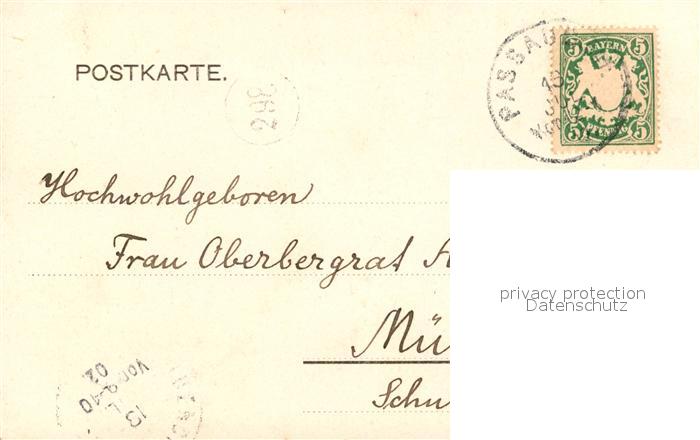 POSTKARTE.
PASSAU
5 BAYERN 5
5 PFENNIG 5
Hochwohlgeboren
Frau Oberbergrat A
Mü
Schu
privacy protection
Datenschutz